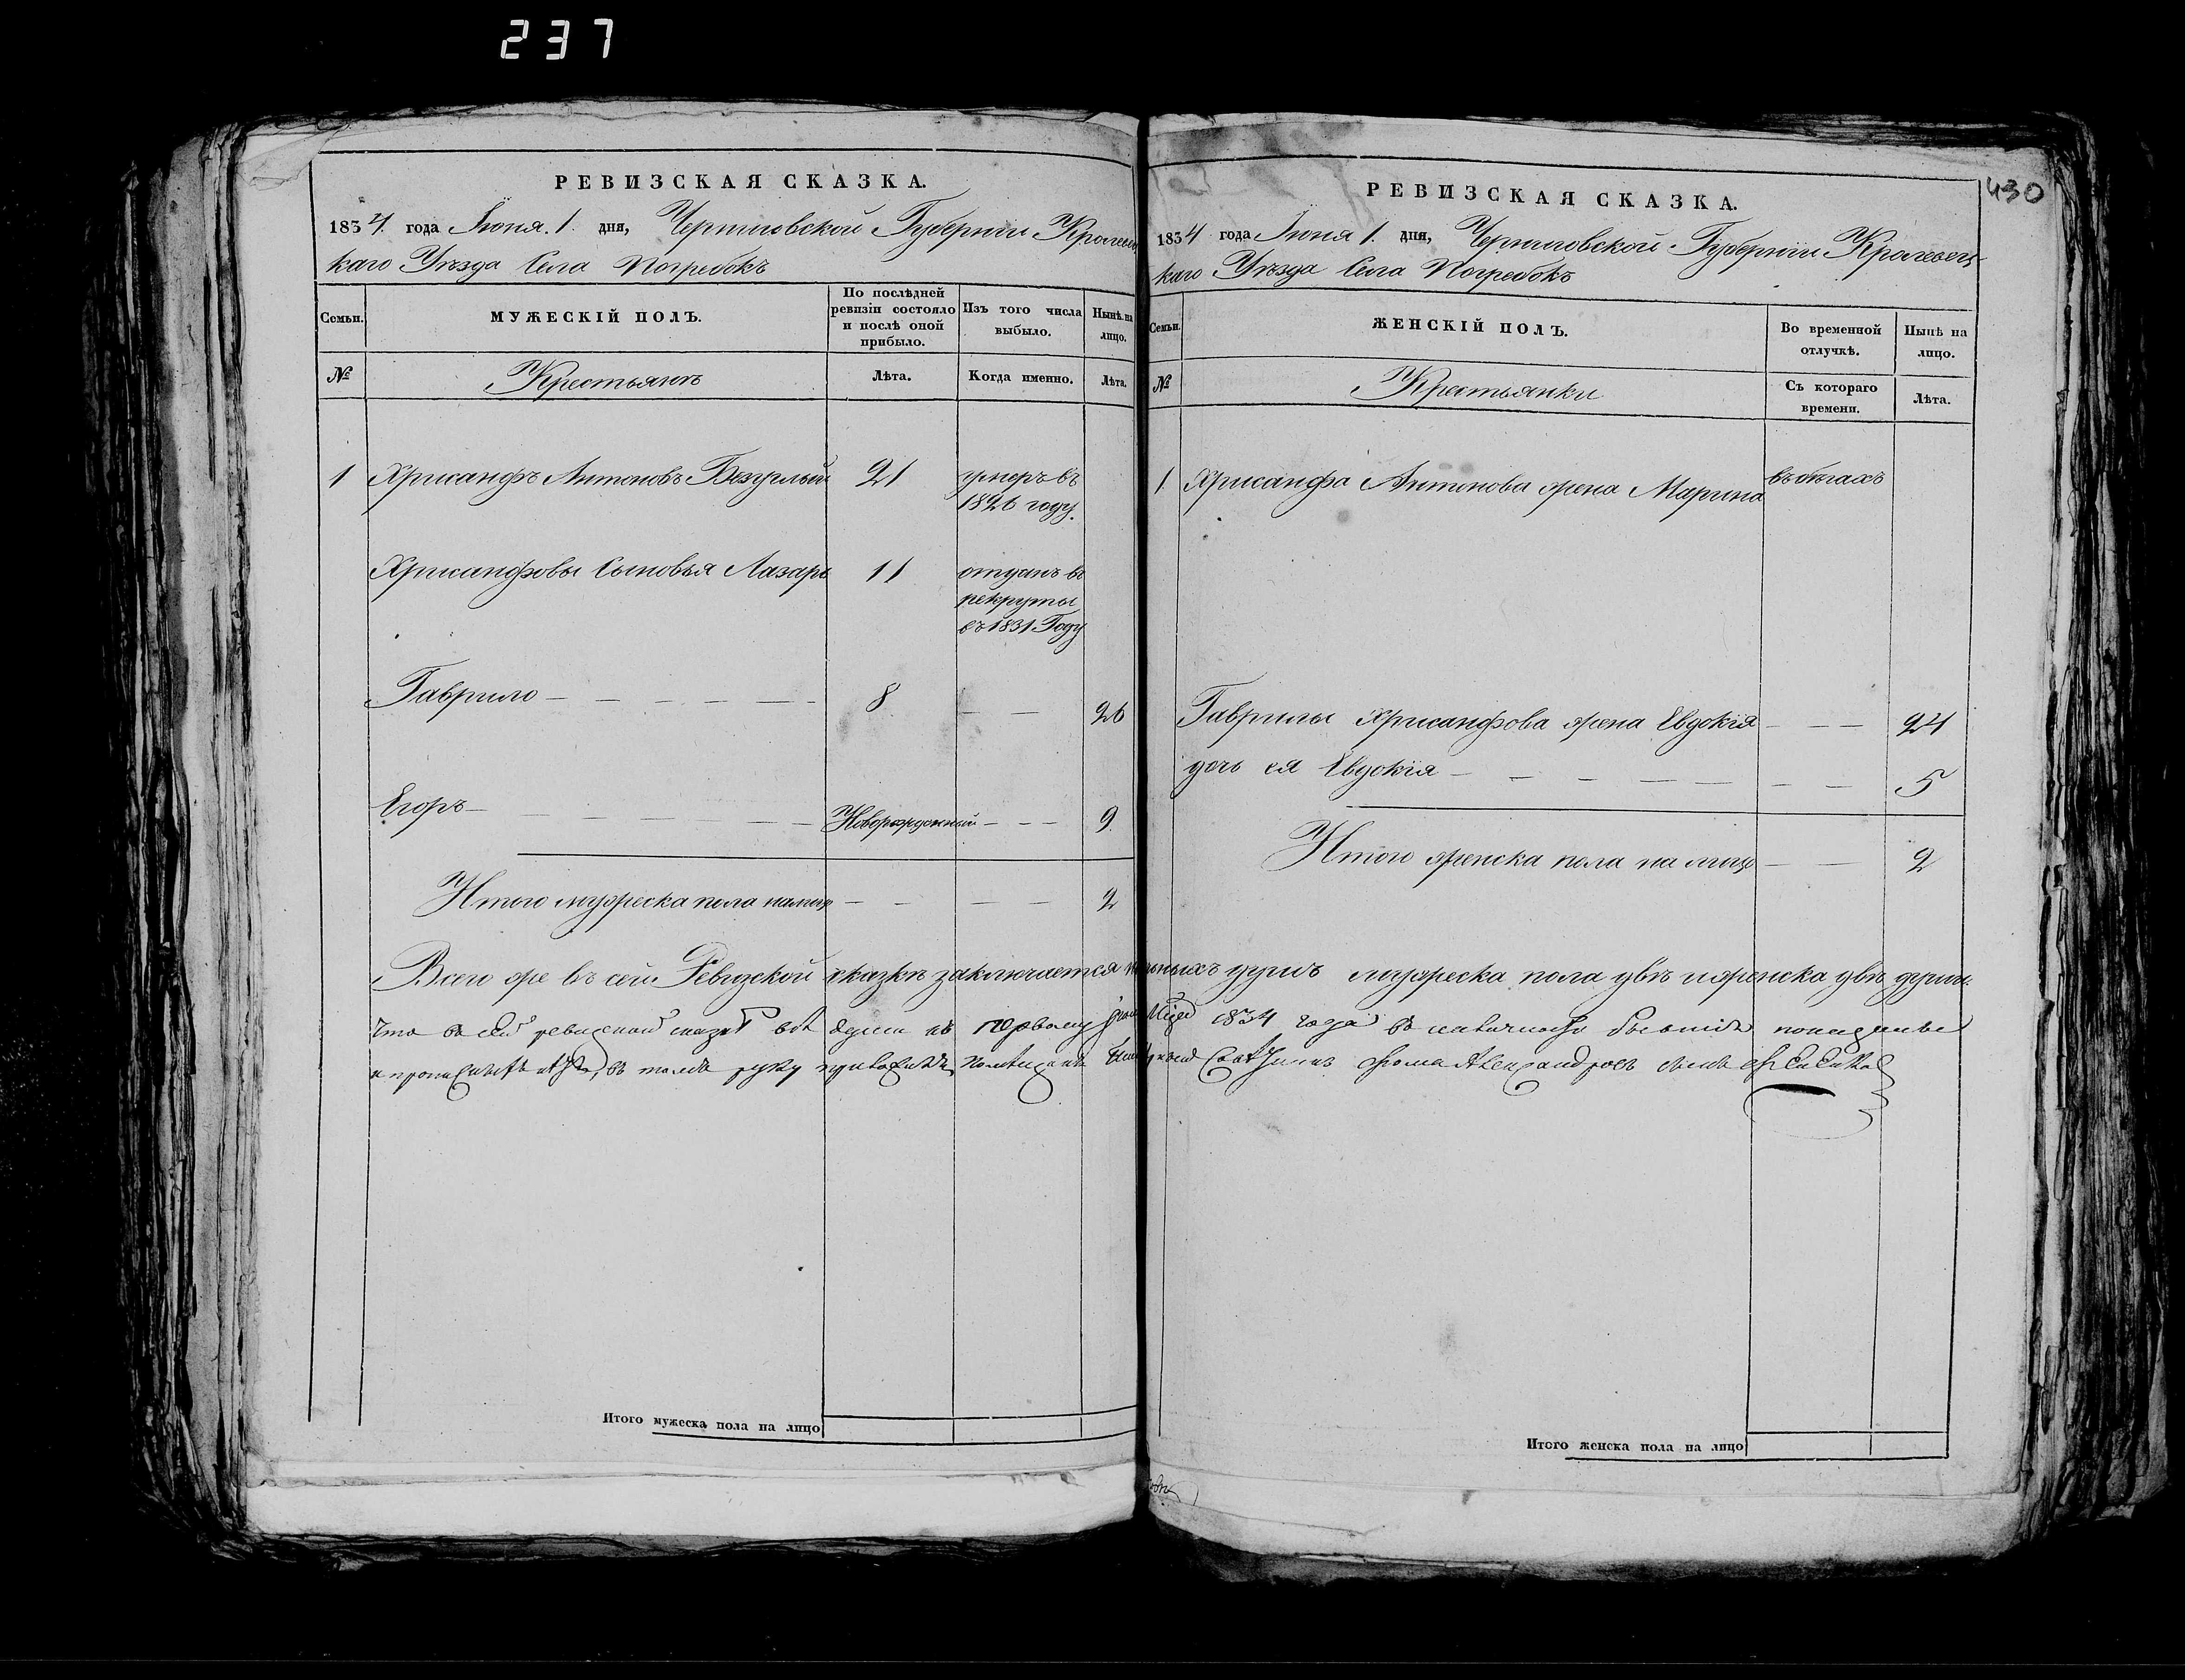 237
РЕВИЗСКАЯ СКАЗКА.
1834. года Іюня. 1. дня, Черниговской Губерніи Кролевец
каго Уѣзда Села Погребокъ
Семьи.
МУЖЕСКІЙ ПОЛЪ.
По послѣдней
ревизіи состояло
и послѣ оной
прибыло.
Изъ того числа
выбыло.
Нынѣ на
лицо.
№
Крестьянъ
Лѣта.
Когда именно.
Лѣта.
1 Хрисанфъ Антоновъ Безуглый 21 умеръ въ
1826 году.
Хрисанфовы Сыновья Лазарь 11 отданъ въ
рекруты
въ 1831 Году
Гаврило 8 26
Егоръ Новорожденный 9
Итого мужеска пола налицо 2
Всего же въ сей Ревизской сказкѣ заключается
Что въ сей ревизской сказкѣ всѣ души къ первому
въ томъ руку
Итого мужеска пола на лицо
430
РЕВИЗСКАЯ СКАЗКА.
1834 года Іюня 1. дня, Черниговской Губерніи Кролевец
каго Уѣзда Села Погребокъ
Семьи.
ЖЕНСКІЙ ПОЛЪ.
Во временной
отлучкѣ.
Нынѣ на
лицо.
№
Крестьянки
Съ котораго
времени.
Лѣта.
1 Хрисанфа Антонова жена Марина въ бѣгахъ
Гаврилы Хрисанфова жена Евдокія 24
дочь ея Евдокія 5
Итого женска пола на лицо 2
душъ мужеска пола двѣ и женска двѣ души.
1834 года въ наличности
Фома Александровъ сынъ
Итого женска пола на лицо